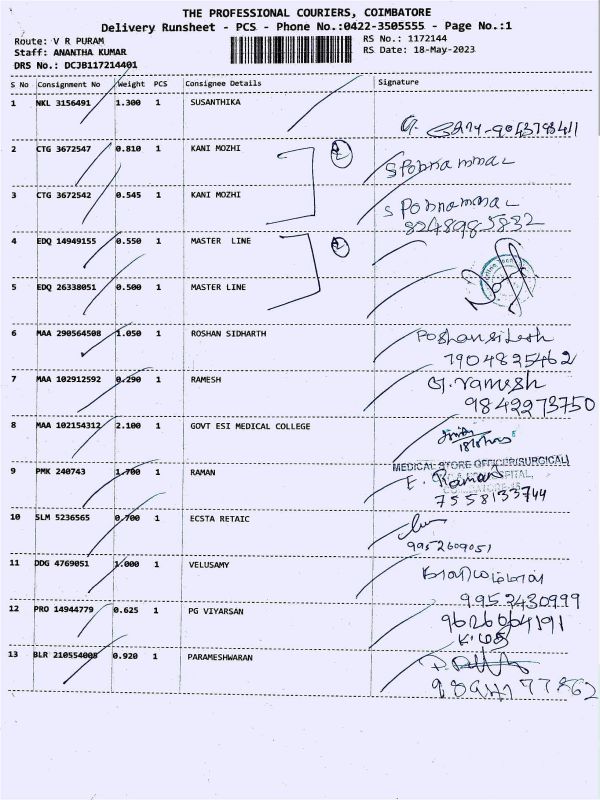 THE PROFESSIONAL COURIERS, COIMBATORE
Delivery Runsheet - PCS - Phone No.:0422-3505555 - Page No.:1
Route: V R PURAM
RS No.: 1172144
Staff: ANANTHA KUMAR
RS Date: 18-May-2023
DRS No.: DCJB117214401
S No Consignment No Weight PCS Consignee Details Signature
1 NKL 3156491 1.300 1 SUSANTHIKA
2 CTG 3672547 0.810 1 KANI MOZHI
3 CTG 3672542 0.545 1 KANI MOZHI
4 EDQ 14949155 0.550 1 MASTER LINE
5 EDQ 26338051 0.500 1 MASTER LINE
6 MAA 290564508 1.050 1 ROSHAN SIDHARTH
7904825462
7 MAA 102912592 0.290 1 RAMESH G. ramesh
9842273750
8 MAA 102154312 2.100 1 GOVT ESI MEDICAL COLLEGE
MEDICAL STORE OFFICER(SURGICAL)
9 PMK 240743 1.700 1 RAMAN E. Raman
7558133744
10 SLM 5236565 0.700 1 ECSTA RETAIC
9952609051
11 DDG 4769051 1.000 1 VELUSAMY
9952430999
12 PRO 14944779 0.625 1 PG VIYARSAN
13 BLR 210554008 0.920 1 PARAMESHWARAN